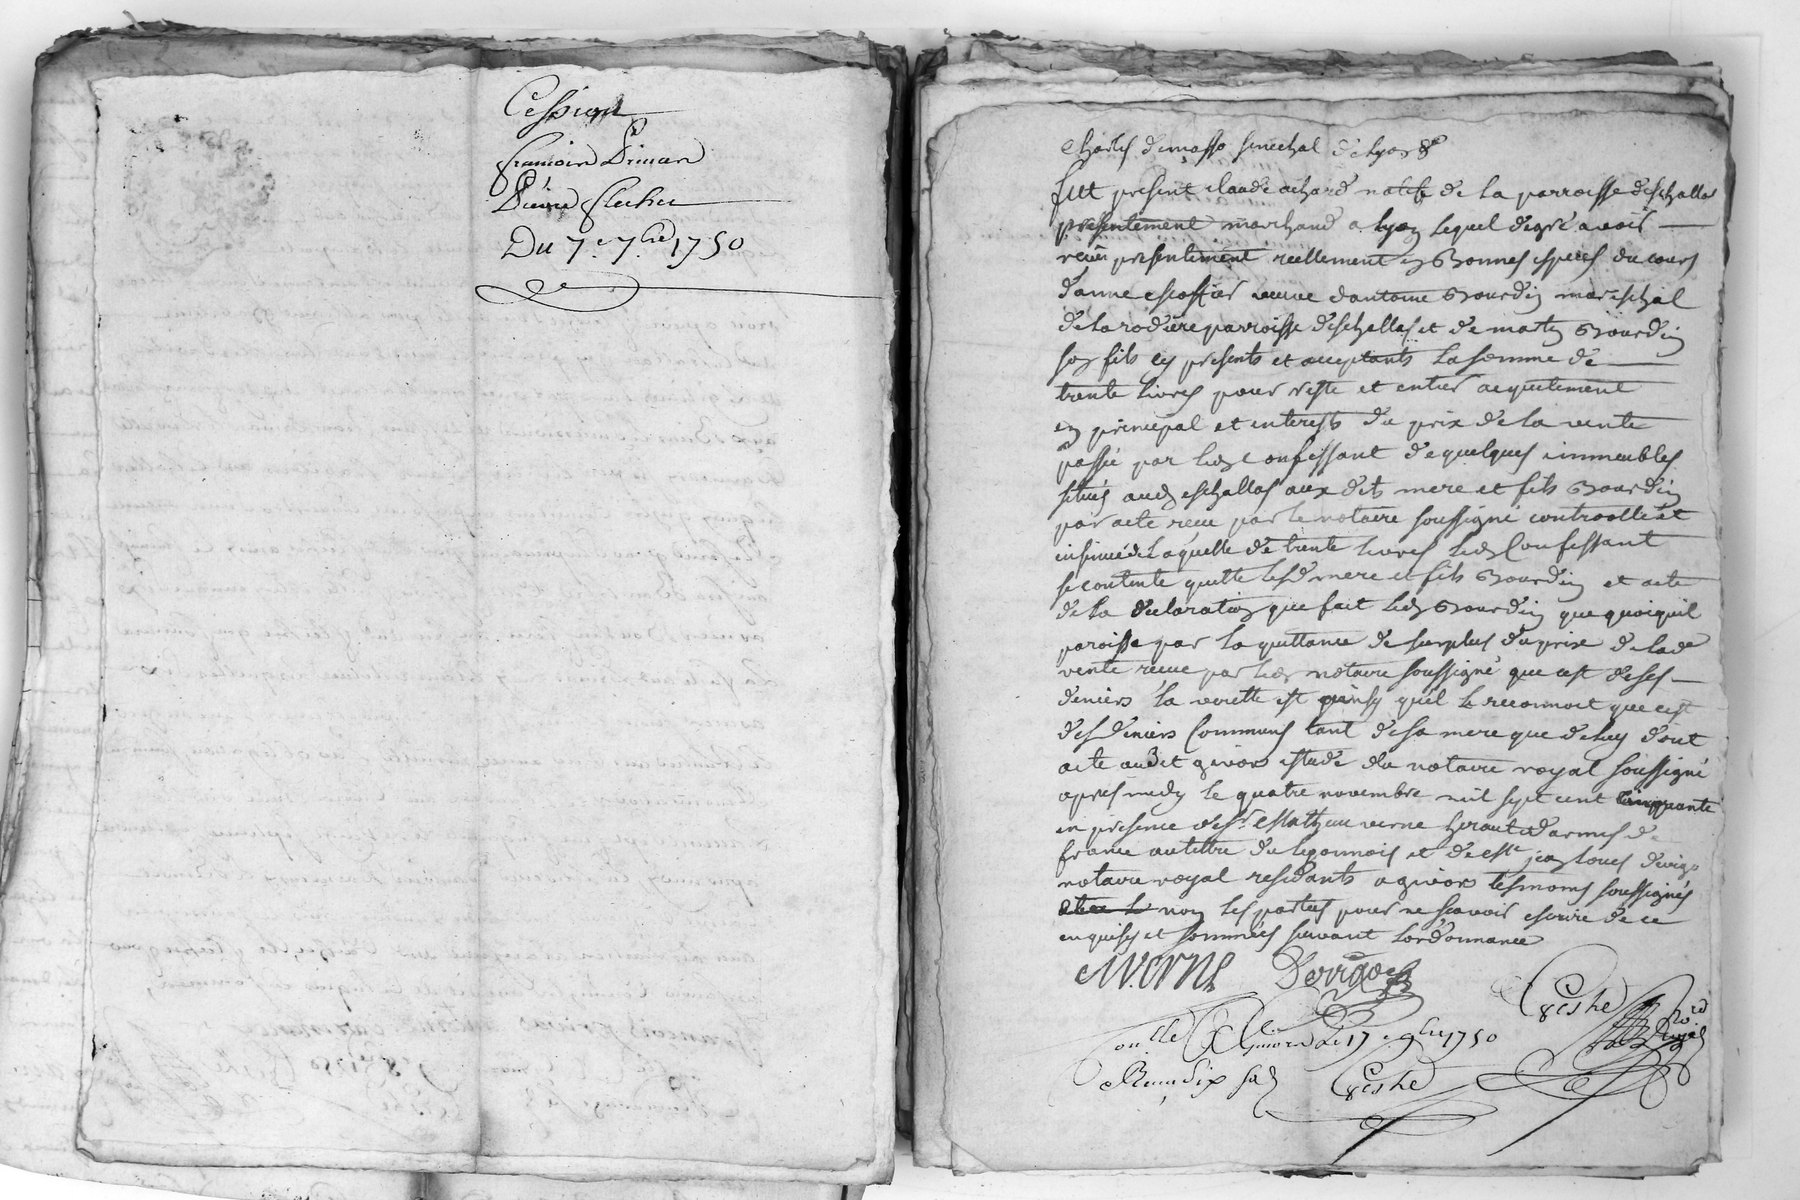 Cession
François Priman
Pierre Flechet
Du 7e 7bre 1750
Charles demasso senechal de lyon &c
fut present claude achard natif de la parroisse deschallas
presentement marchand a lyon lequel degré avoir
receu presentement reellement en bonnes especes du cours
danne escoffier veuve dantoine Bourdin mareschal
de la rodiere parroisse deschallas et de matin Bourdin
son fils cy presents et acceptants la somme de
trente livres pour reste et entier acquittement
en principal et interests du prix de la vente
passée par led confessant de quelques immeubles
situés aud eschallas aux dits mere et fils Bourdin
par acte receu par le notaire soussigné controollé et
insinué de laquelle de trente livres led confessant
se contente quitte lesd mere et fils Bourdin et acte
de la declaration que fait led Bourdin que quoiquil
paroisse par la quittance de surplus du prix de lade
vente receue par led notaire soussigné que cest de ses
deniers la verité est quil le reconnoit que cest
des deniers communs tant de sa mere que de luy dont
acte audit givors estude du notaire royal soussigné
apres midy le quatre novembre mil sept cent cinquante
en presence de sr Mathieu verne heraut darmes de
france au tittre du lyonnois et de me jean louis
notaire royal residants a givors tesmoins soussignés
non les parties pour ne scavoir escrire de ce
enquises et sommées suivant lordonnance
M. VERNE
onllé a Givors le 17e 9bre 1750
Receu six sols